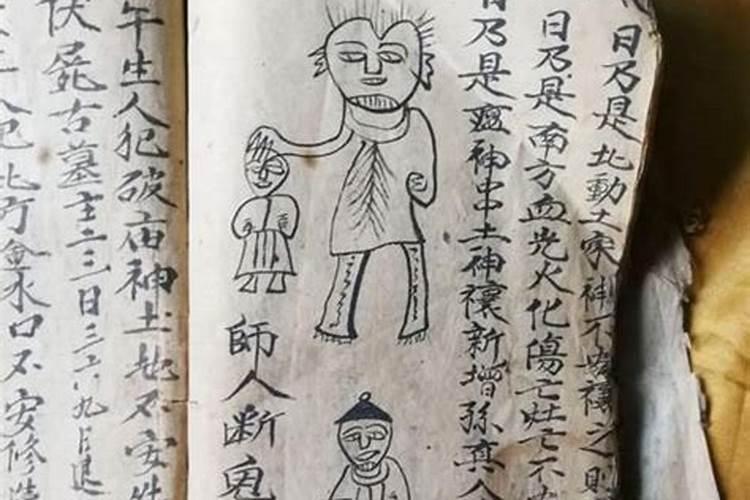 日乃是北動土家神不安禳之則
日乃是南方血光火化傷亡灶亡不
日乃是瘟神串土神禳新增孫真人
師人断鬼
午生人犯破庙神土地不安生
伏屍古墓主二三日三六九月退
人犯北方金水口不安修造